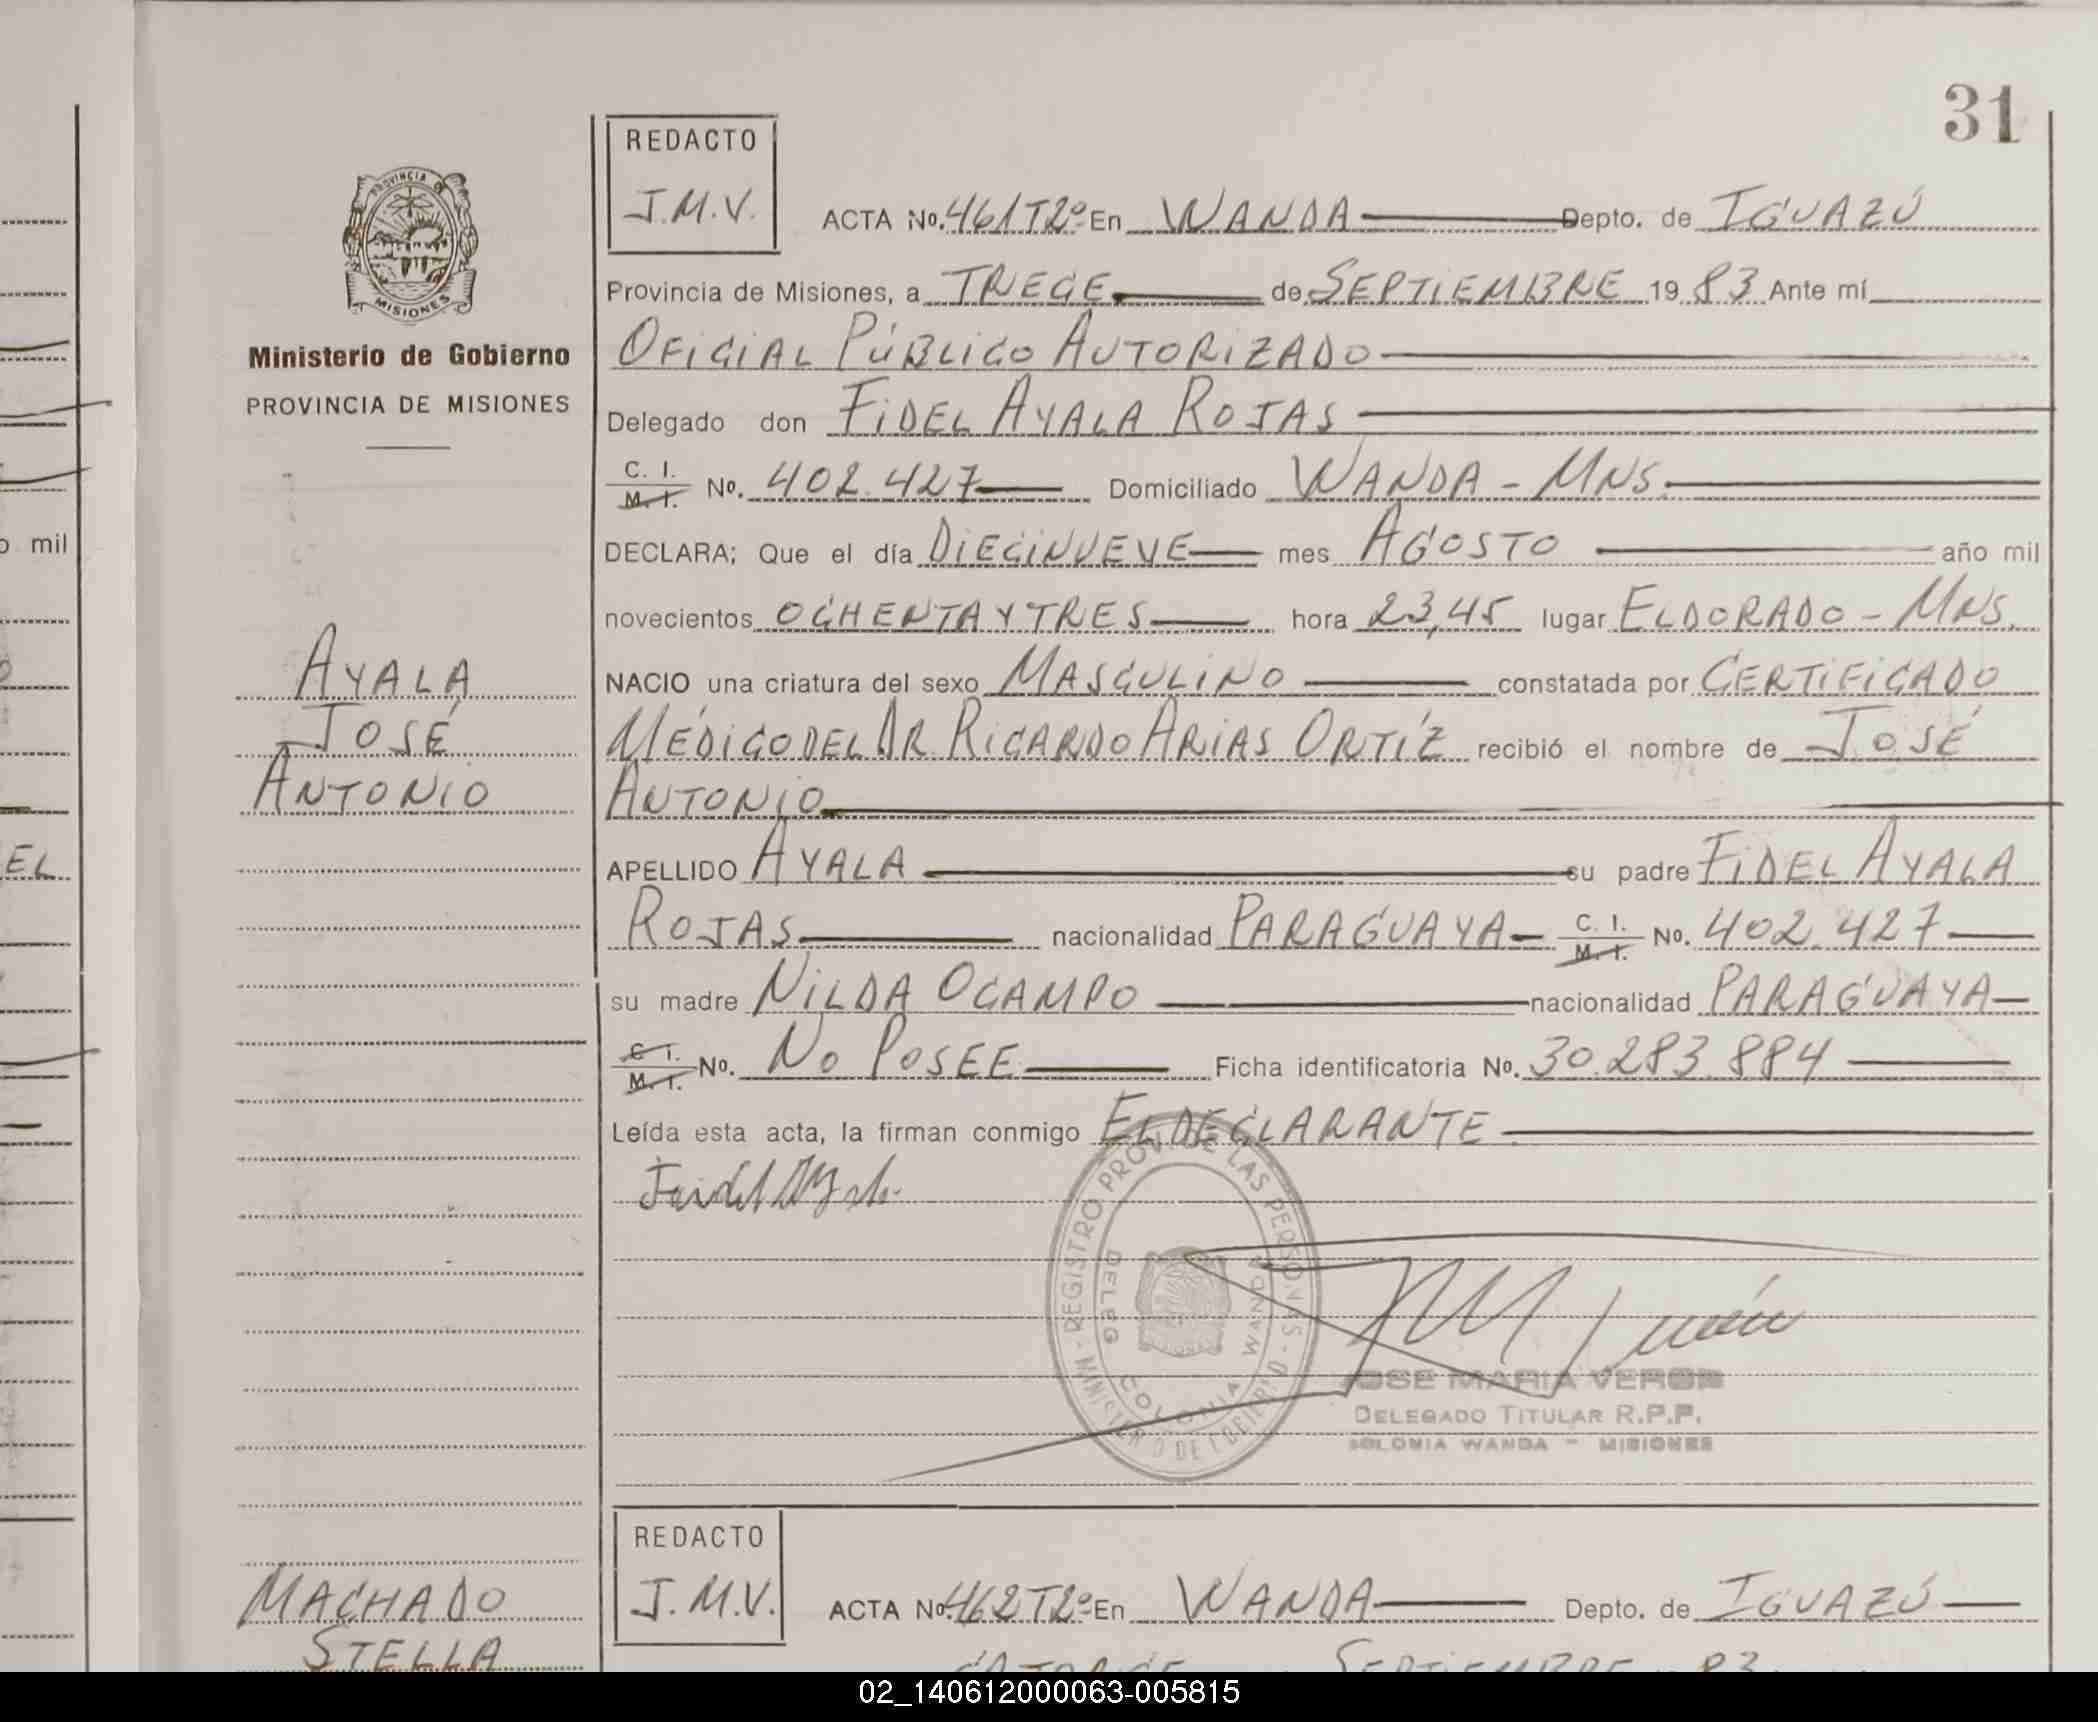 31
REDACTO
J.M.V.
ACTA No. 461T2º En WANDA Depto. de IGUAZÚ
PROVINCIA DE MISIONES
Ministerio de Gobierno
PROVINCIA DE MISIONES
Provincia de Misiones, a TRECE de SEPTIEMBRE 19 83 Ante mí
OFICIAL PÚBLICO AUTORIZADO
Delegado don FIDEL AYALA ROJAS
C. I.
M. I. No. 402.427 Domiciliado WANDA - MNS.
DECLARA; Que el día DIECINUEVE mes AGOSTO año mil
novecientos OCHENTA Y TRES hora 23,45 lugar ELDORADO - MNS.
AYALA
JOSÉ
ANTONIO
NACIO una criatura del sexo MASCULINO constatada por CERTIFICADO
MÉDICO DEL DR RICARDO ARIAS ORTÍZ recibió el nombre de JOSÉ
ANTONIO
APELLIDO AYALA su padre FIDEL AYALA
ROJAS nacionalidad PARAGUAYA C. I.
M. I. No. 402.427
su madre NILDA OCAMPO nacionalidad PARAGUAYA
C. I.
M. I. No. NO POSEE Ficha identificatoria No. 30.283.884
Leída esta acta, la firman conmigo EL DECLARANTE
REGISTRO PROV. DE LAS PERSONAS
MINISTERIO DE GOBIERNO
DELEG COLONIA WANDA
JOSE MARIA VERON
DELEGADO TITULAR R.P.P.
COLONIA WANDA - MISIONES
REDACTO
J.M.V.
ACTA No. 462T2º En WANDA Depto. de IGUAZÚ
MACHADO
STELLA
CATORCE SEPTIEMBRE 83
o mil
EL
02_140612000063-005815